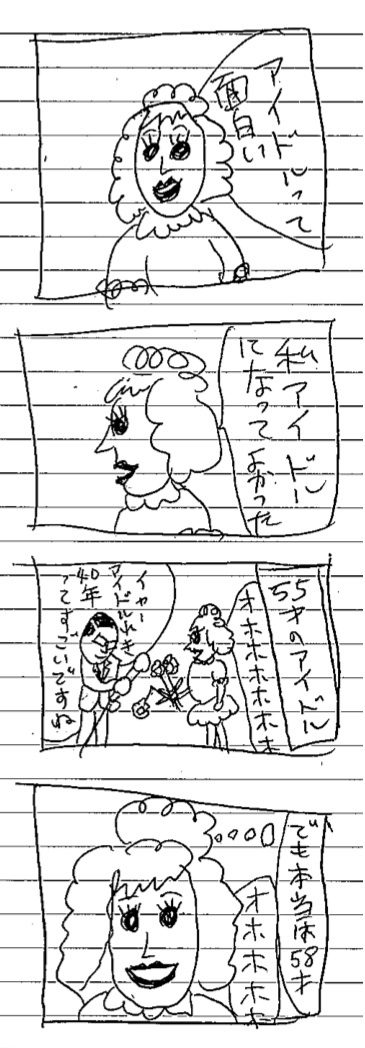 アイドルって
面白い
私アイドル
になってよかった
55才のアイドル
オホホホホホホ
イヤー
アイドルれき
40年
ってすごいですね
でも本当は58才
オホホホホ